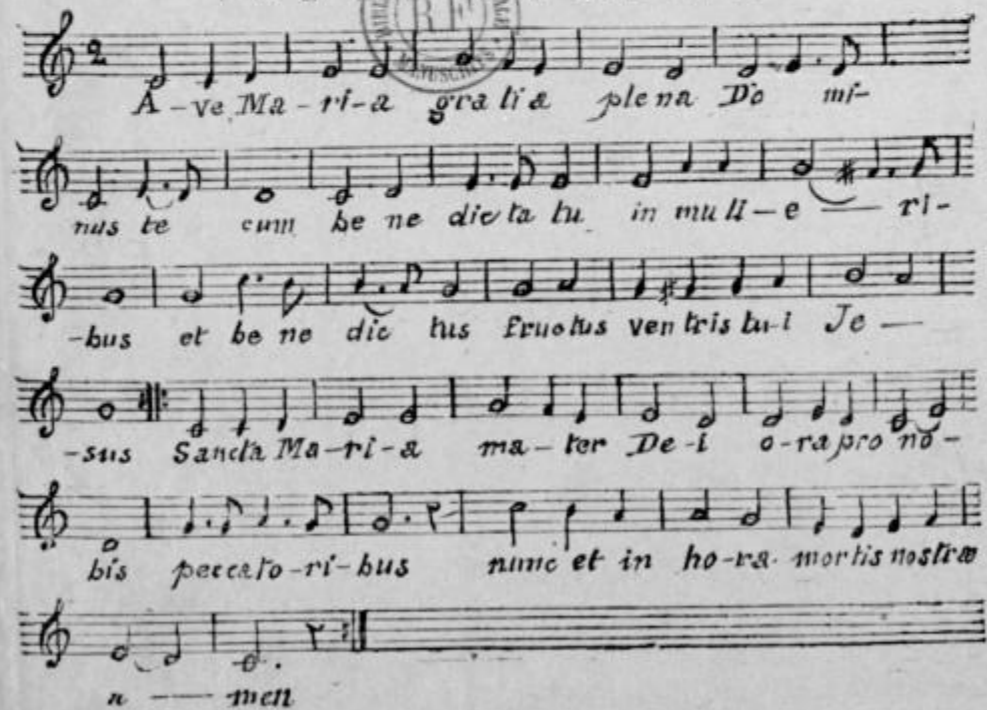 MANUSCRITS
2
A-ve Ma-ri-a gra ti a ple na Do mi-
nus te cum be ne dic ta tu in mu li-e — ri-
-bus et be ne dic tus fructus ven tris tu-i Je —
-sus Sancta Ma-ri-a ma-ter De-i o-ra pro no-
bis peccato-ri-bus nunc et in ho-ra mortis nostræ
a — men